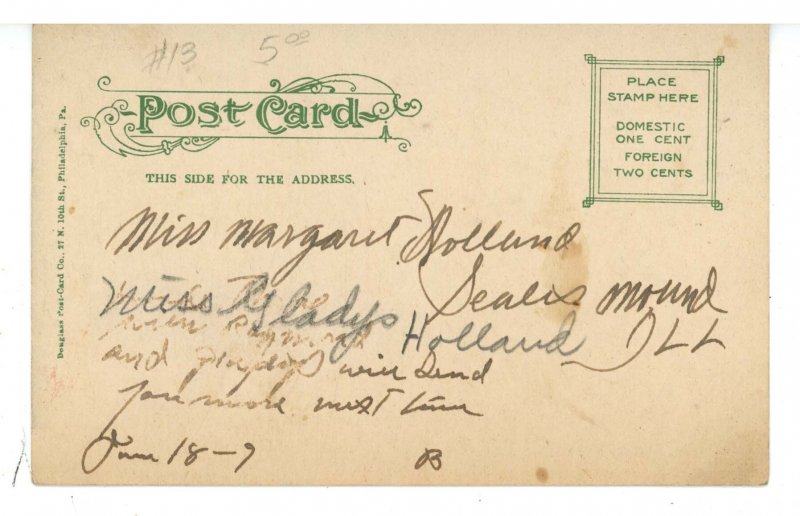 #13 5⁰⁰
POST CARD
THIS SIDE FOR THE ADDRESS.
PLACE
STAMP HERE
DOMESTIC
ONE CENT
FOREIGN
TWO CENTS
Douglass Post-Card Co., 27 N. 10th St., Philadelphia, Pa.
Miss Margaret Holland
Seales mound
Miss Gladys Holland ILL
and will send
you more next time
June 18-7 B